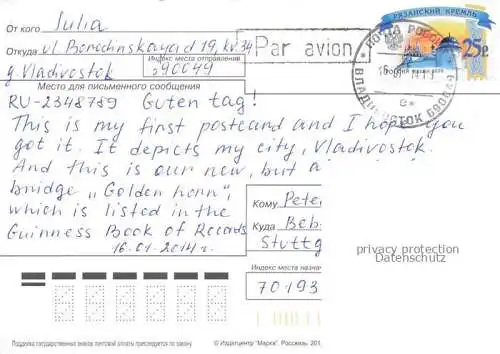 От кого Iulia
Откуда ul Borodinskaya d 19, kv. 34
Индекс места отправления
g. Vladivostok 690049
Par avion
РЯЗАНСКИЙ КРЕМЛЬ
25р
ПОЧТА РОССИИ
ВЛАДИВОСТОК 690049
Место для письменного сообщения
RU-2348789 Guten tag!
This is my first postcard and I hope you
got it. It depicts my city, Vladivostok.
And this is our new, but a
bridge „Golden horn",
which is listed in the
Guinness Book of Records
16.01.2014 г.
Кому Peter
Куда Beb
Stuttg
privacy protection
Datenschutz
Индекс места назнач
70193
Подделка государственных знаков почтовой оплаты преследуется по закону
© Издатцентр "Марка". Россвязь. 201